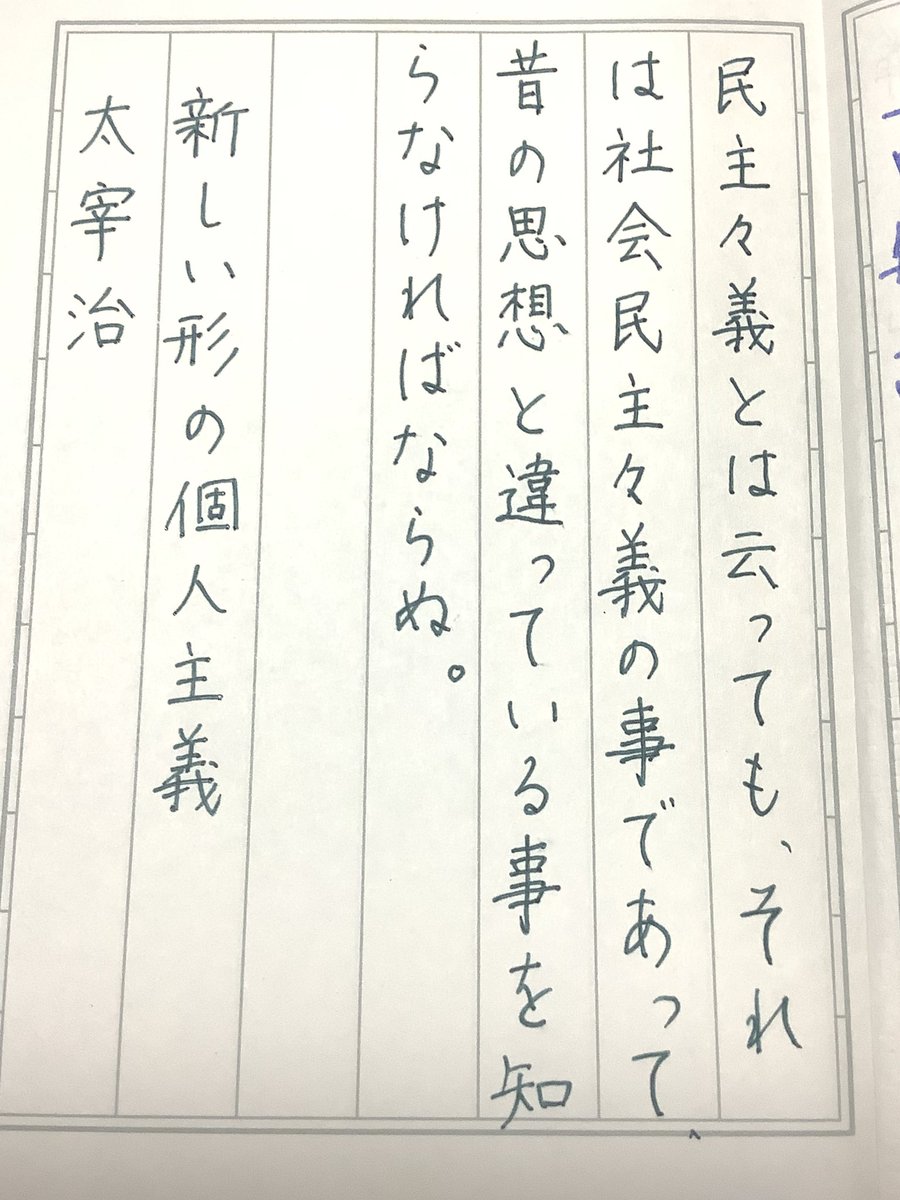 民主々義とは云っても、それ
は社会民主々義の事であって、
昔の思想と違っている事を知
らなければならぬ。
新しい形の個人主義
太宰治